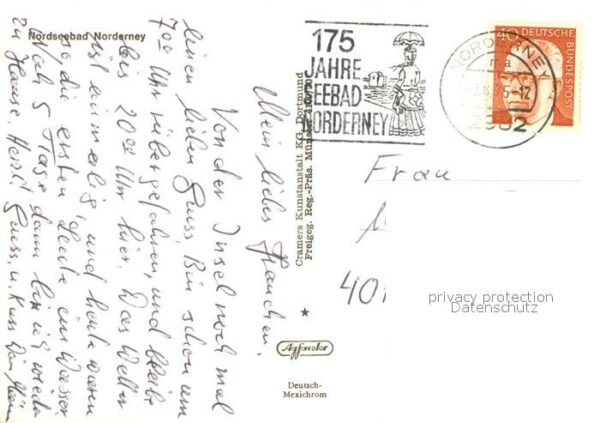 Nordseebad Norderney
175
JAHRE
SEEBAD
NORDERNEY
NORDERNEY
2982
40
DEUTSCHE
BUNDESPOST
Mein liebes Frauchen.
Von der Insel noch mal
einen lieben Gruss. Bin schon um
7.00 Uhr rübergefahren, und bleibe
bis 20.00 Uhr hier. Das Wetter
ist einmalig, und heute waren
so die ersten Leute im Wasser
Noch 5 Tage dann bin ich wieder
zu Hause. Herzl. Gruss, u. Kuss Dein
Cramers Kunstanstalt KG. Dortmund
Freigeg. Reg.-Präs. Münster
Agfacolor
Deutsch-
Mexichrom
Frau
privacy protection
Datenschutz